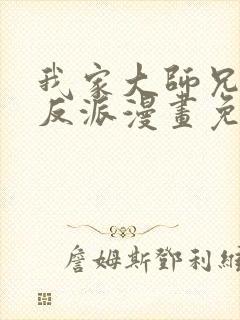 我家大師兄
反派漫畫免
詹姆斯鄧利維